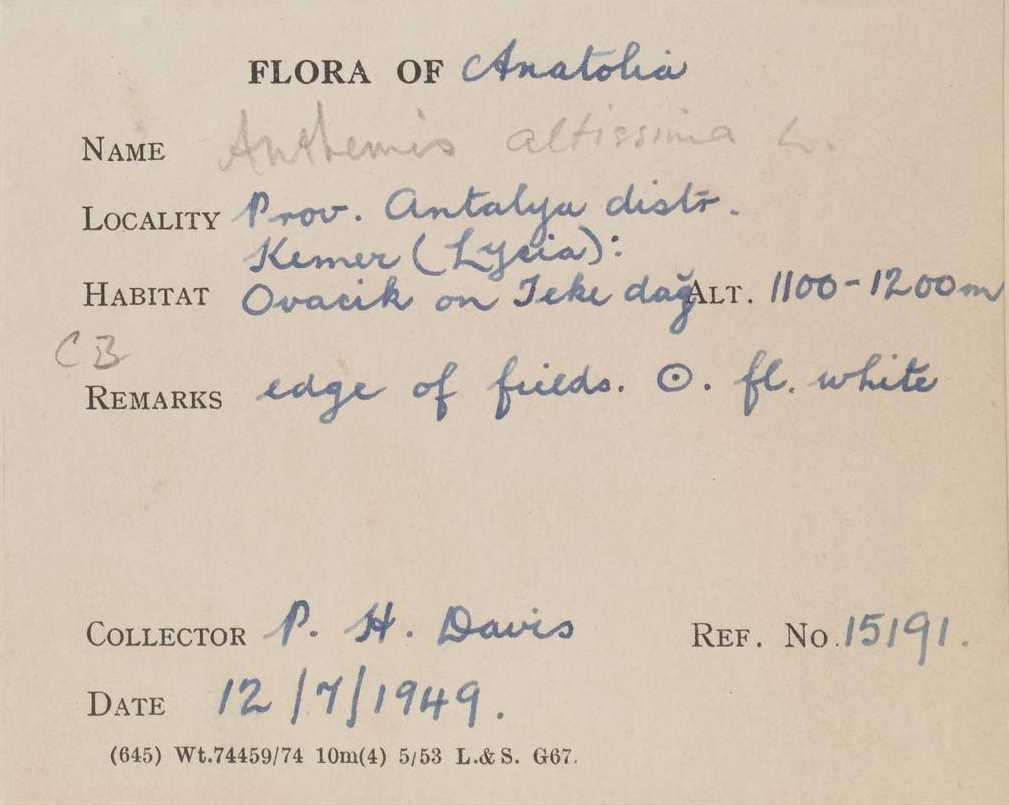 FLORA OF Anatolia
NAME Anthemis altissima L.
LOCALITY Prov. Antalya distr.
Kemer (Lycia):
HABITAT Ovacik on Teke dağ ALT. 1100-1200m
CB
REMARKS edge of fields. ⊙. fl. white
COLLECTOR P. H. Davis REF. No. 15191.
DATE 12/7/1949.
(645) Wt.74459/74 10m(4) 5/53 L.& S. G67.